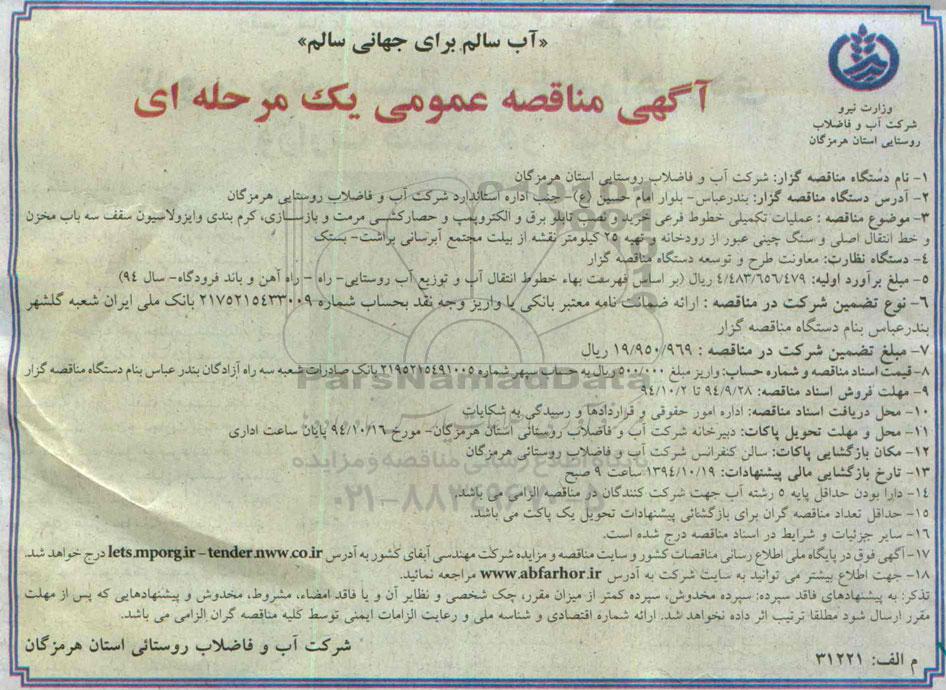 «آب سالم برای جهانی سالم»
آگهی مناقصه عمومی یک مرحله ای
وزارت نیرو
شرکت آب و فاضلاب
روستایی استان هرمزگان
۱- نام دستگاه مناقصه گزار: شرکت آب و فاضلاب روستایی استان هرمزگان
۲- آدرس دستگاه مناقصه گزار: بندرعباس- بلوار امام حسین (ع)- جنب اداره استاندارد شرکت آب و فاضلاب روستایی هرمزگان
۳- موضوع مناقصه : عملیات تکمیلی خطوط فرعی خرید و نصب تابلو برق و الکتروپمپ و حصارکشی مرمت و بازسازی، کرم بندی وایزولاسیون سقف سه باب مخزن
و خط انتقال اصلی و سنگ چینی عبور از رودخانه و تهیه ۲۵ کیلومتر نقشه از بیلت مجتمع آبرسانی پراشت- بستک
۴- دستگاه نظارت: معاونت طرح و توسعه دستگاه مناقصه گزار
۵- مبلغ برآورد اولیه: ۴/۴۸۳/۶۵۶/۴۷۹ ریال (بر اساس فهرست بهاء خطوط انتقال آب و توزیع آب روستایی- راه – راه آهن و باند فرودگاه- سال ۹۴)
۶- نوع تضمین شرکت در مناقصه : ارائه ضمانت نامه معتبر بانکی یا واریز وجه نقد بحساب شماره ۲۱۷۵۲۱۵۴۳۳۰۰۹ بانک ملی ایران شعبه گلشهر
بندرعباس بنام دستگاه مناقصه گزار
۷- مبلغ تضمین شرکت در مناقصه : ۱۹/۹۵۰/۹۶۹ ریال
۸- قیمت اسناد مناقصه و شماره حساب: واریز مبلغ ۵۰۰/۰۰۰ ریال به حساب سپهر شماره ۲۱۹۵۲۱۵۴۹۱۰۰۵ بانک صادرات شعبه سه راه آزادگان بندر عباس بنام دستگاه مناقصه گزار
۹- مهلت فروش اسناد مناقصه: ۹۴/۹/۲۸ تا ۹۴/۱۰/۲
۱۰- محل دریافت اسناد مناقصه: اداره امور حقوقی و قراردادها و رسیدگی به شکایات
۱۱- محل و مهلت تحویل پاکات: دبیرخانه شرکت آب و فاضلاب روستائی استان هرمزگان- مورخ ۹۴/۱۰/۱۶ پایان ساعت اداری
۱۲- مکان بازگشایی پاکات: سالن کنفرانس شرکت آب و فاضلاب روستائی هرمزگان
۱۳- تارخ بازگشایی مالی پیشنهادات: ۱۳۹۴/۱۰/۱۹ ساعت ۹ صبح
۱۴- دارا بودن حداقل پایه ۵ رشته آب جهت شرکت کنندگان در مناقصه الزامی می باشد.
۱۵- حداقل تعداد مناقصه گران برای بازگشائی پیشنهادات تحویل یک پاکت می باشد.
۱۶- سایر جزئیات و شرایط در اسناد مناقصه درج شده است.
۱۷- آگهی فوق در پایگاه ملی اطلاع رسانی مناقصات کشور و سایت مناقصه و مزایده شرکت مهندسی آبفای کشور به آدرس lets.mporg.ir – tender.nww.co.ir درج خواهد شد.
۱۸- جهت اطلاع بیشتر می توانید به سایت شرکت به آدرس www.abfarhor.ir مراجعه نمائید.
تذکر: به پیشنهادهای فاقد سپرده: سپرده مخدوش، سپرده کمتر از میزان مقرر، چک شخصی و نظایر آن و یا فاقد امضاء، مشروط، مخدوش و پیشنهادهایی که پس از مهلت
مقرر ارسال شود مطلقا ترتیب اثر داده نخواهد شد. ارائه شماره اقتصادی و شناسه ملی و رعایت الزامات ایمنی توسط کلیه مناقصه گران الزامی می باشد.
شرکت آب و فاضلاب روستائی استان هرمزگان
م الف: ۳۱۲۲۱
ParsNamadData